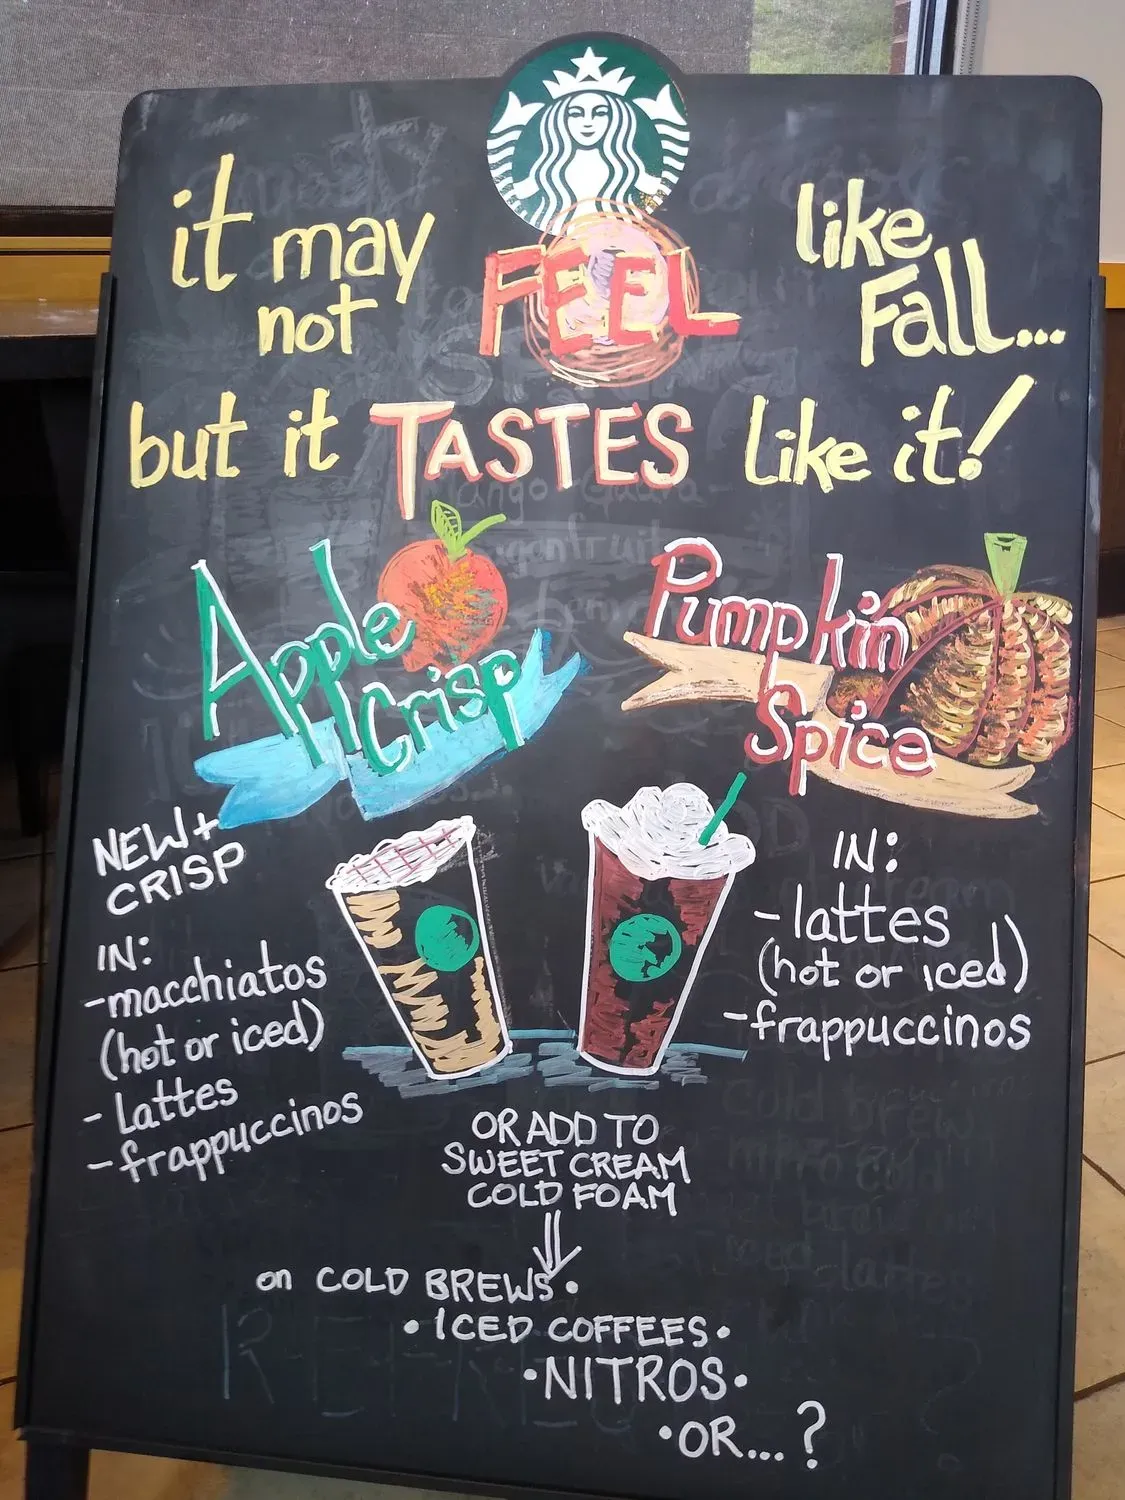 it may not FEEL like Fall...
but it TASTES like it!
Apple Crisp
NEW + CRISP
IN:
- macchiatos
(hot or iced)
- lattes
- frappuccinos
Pumpkin Spice
IN:
- lattes
(hot or iced)
- frappuccinos
OR ADD TO
SWEET CREAM
COLD FOAM
on COLD BREWS •
• ICED COFFEES •
• NITROS •
• OR...?